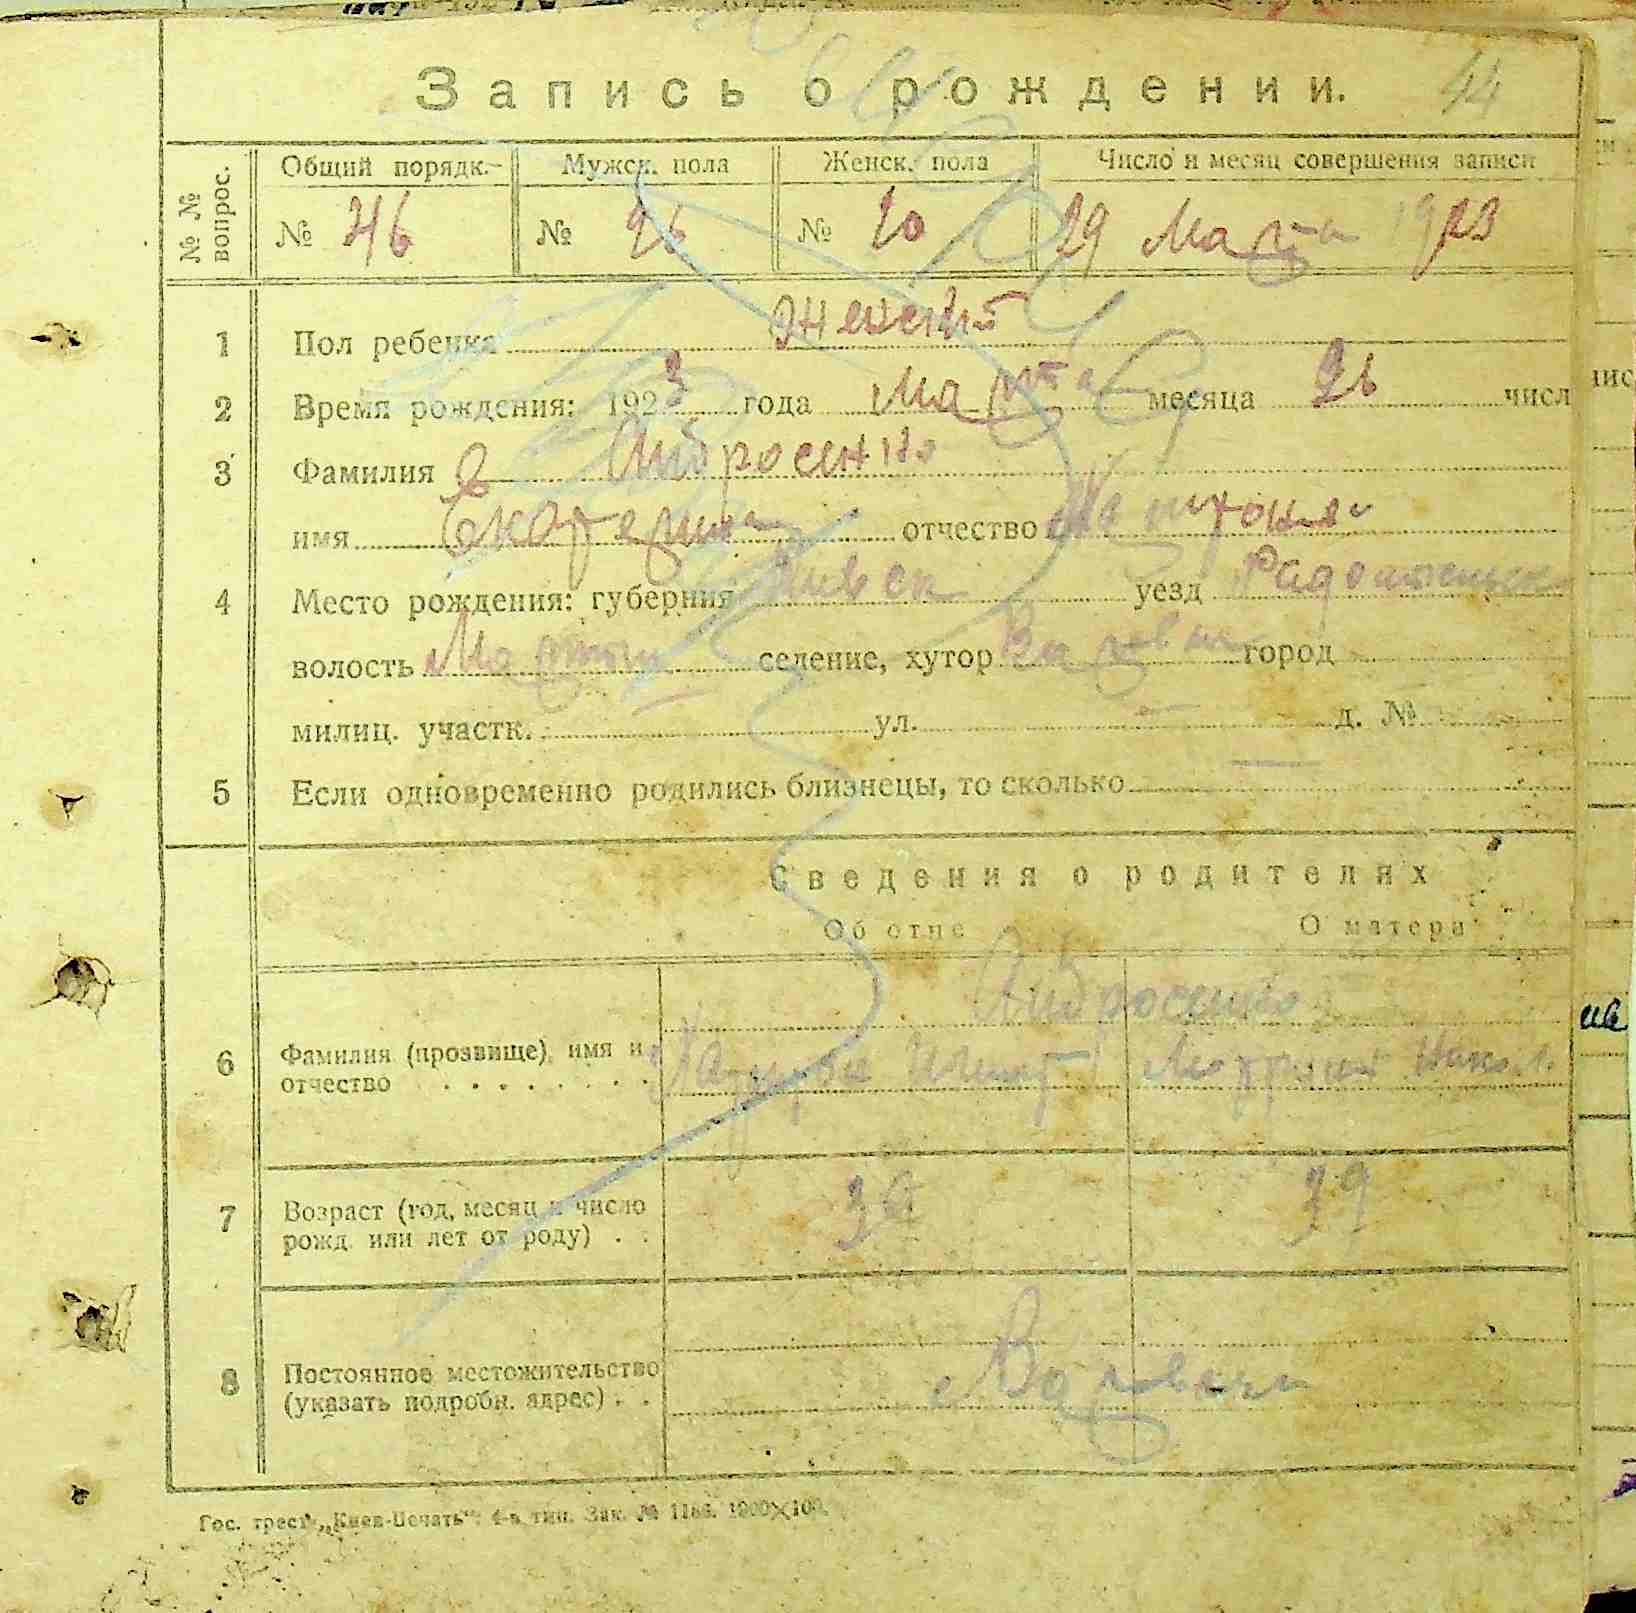 Запись о рождении. 44
№ № вопрос. Общий порядк. Мужск. пола Женск. пола Число и месяц совершения записи
№ 46 № 26 № 20 29 Марта 1923
1 Пол ребенка Женский
2 Время рождения: 1923 года Марта месяца 26 числ
3 Фамилия Андросенко
имя Екатерина отчество
4 Место рождения: губерния Киевск уезд Радомысльск
волость селение, хутор город
милиц. участк. ул. д. №
5 Если одновременно родились близнецы, то сколько
Сведения о родителях
Об отце О матери
Андросенко
6 Фамилия (прозвище), имя и
отчество
7 Возраст (год, месяц и число
рожд. или лет от роду) 39 39
8 Постоянное местожительство
(указать подробн. адрес)
Гос. трест „Киев-Печать“: 4-я тип. Зак. №